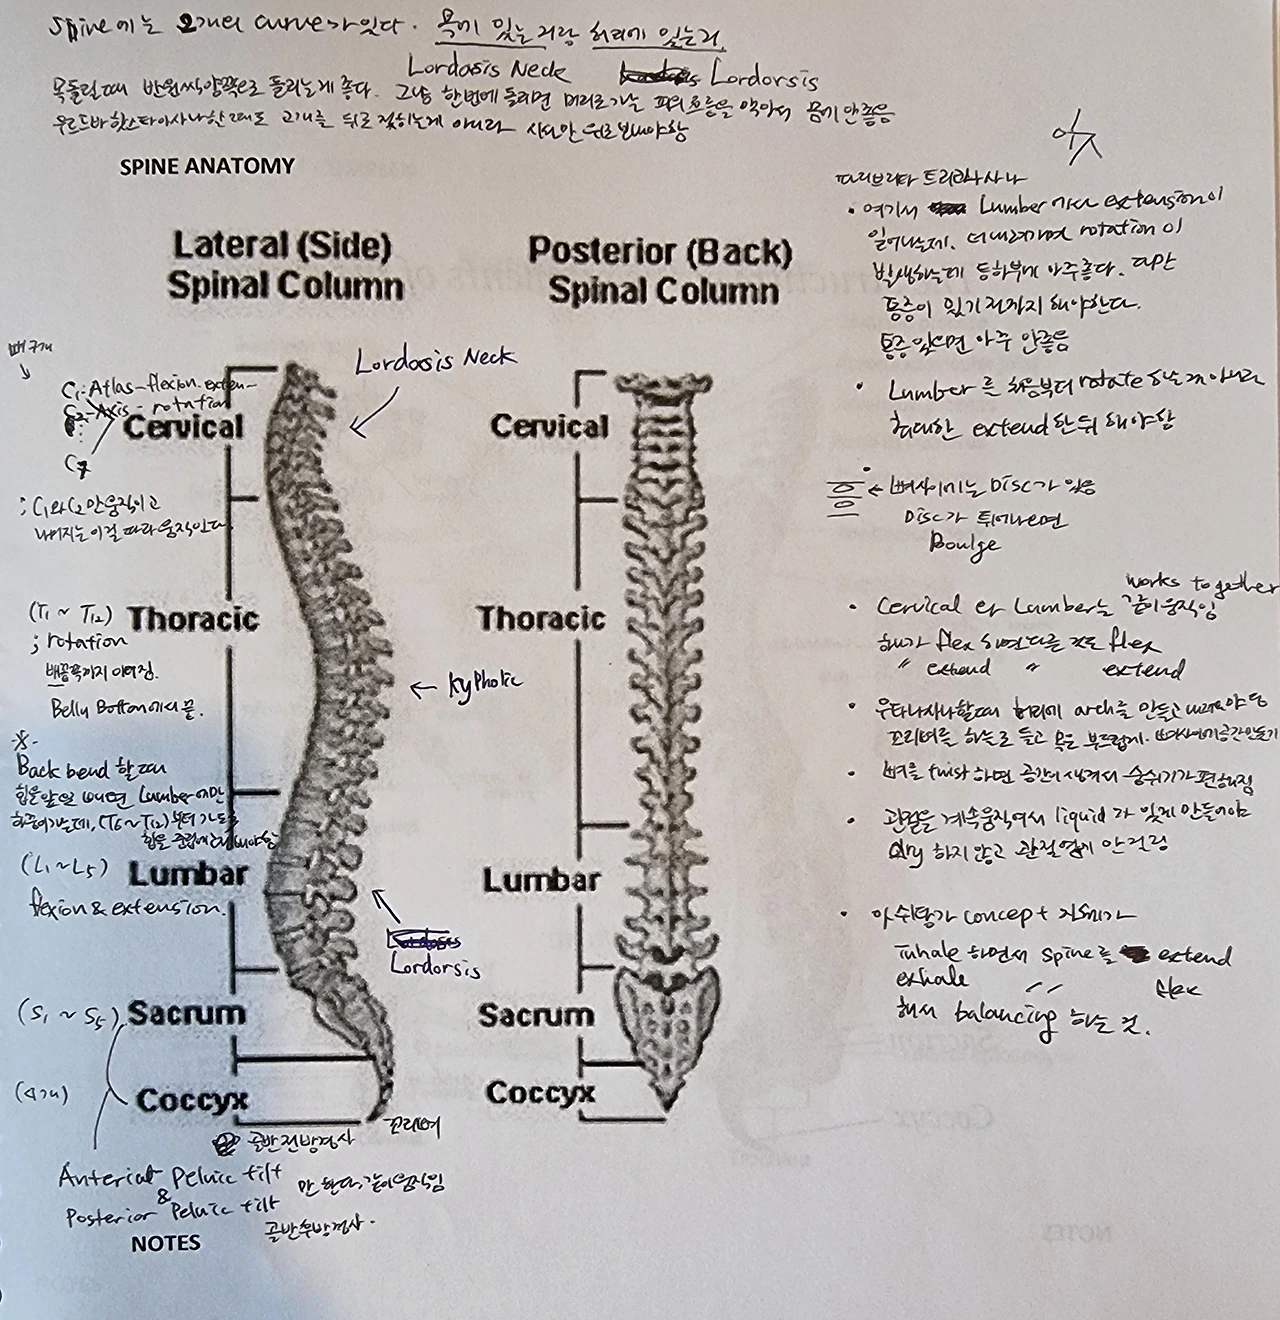 Spine에는 2개의 curve가있다. 목에 있는거랑 허리에 있는거.
Lordosis Neck Lordorsis
목돌릴때 반원씩양쪽으로 돌리는게 좋다. 그냥 한번에 돌리면 머리로가는 피의흐름을 막아서 몸에안좋음
우르드바핫스타아사나한때도 고개를 뒤로 젖히는게 아니라 시선만 뒤로 보내야함
SPINE ANATOMY
Lateral (Side)
Spinal Column
Posterior (Back)
Spinal Column
Lordosis Neck
C1: Atlas-flexion. exten-
C2-Axis - rotation
C7
Cervical
; C1와C2만움직이고
나머지는이걸 따라움직인다.
(T1 ~ T12)
Thoracic
; rotation
배꼽쪽까지 이어짐.
Belly Botton에서 끝.
← Kyphotic
※-
Back bend 할때
힘을앞일 Lumber에만
(T6~T12)부터
(L1~L5)
Lumbar
flexion & extension.
Lordorsis
(S1 ~ S5)
Sacrum
(4개)
Coccyx
꼬리뼈
골반전방경사
Anteriat Peluic tilt
&
Posterior Peluic tilt
골반후방경사.
NOTES
Cervical
Thoracic
Lumbar
Sacrum
Coccyx
파리브리타 트리코나사나
• 여기서 Lumber에서 extension이
일어나는데. 더내려가며 rotation이
발생하는데 등하부에 아주좋다. 다만
통증이 있기 전까지 해야한다.
통증있으면 아주 안좋음
• Lumber를 처음부터 rotate 하는게아니라
최대한 extend한뒤 해야함
← 뼈사이에는 Disc가 있음
Disc가 튀어나오면
Boulge
works together
• Cervical 과 Lumber는 같이움직임
하나가 flex 하면 다른 것도 flex
" extend " extend
• 우타나사나할때 허리에 arch를 만들고 내려가야함
꼬리뼈를 하늘로 들고 목은 부드럽게. 뼈사이에공간만들기
• 뼈를 twist 하면 공간이생겨서 숨쉬기가 편해짐
• 관절을 계속움직여서 liquid가 있게 만들어야
dry 하지않고 관절염에 안걸림
• 아쉬탕가 concept 자체가
Inhale 하면서 spine를 extend
exhale " flex
해서 balancing 하는 것.